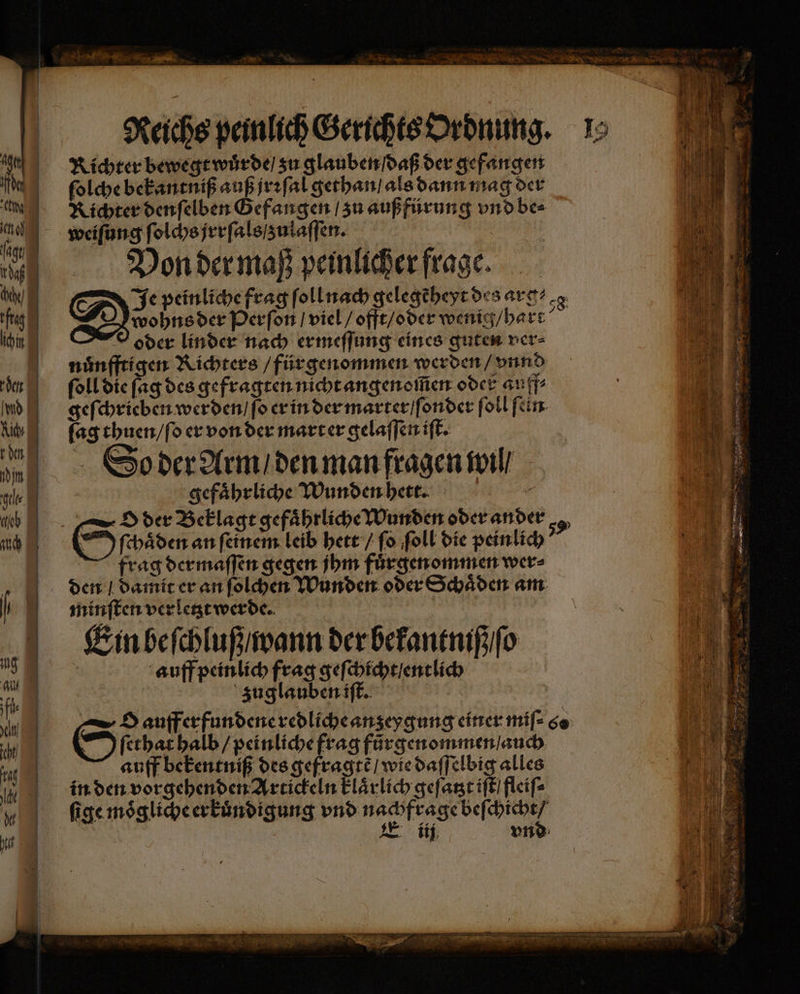 Reichs peinlich Gerichts Ordnung. 19
Richter bewegt wuͤrde/ zu glauben/daß der gefangen
ſolche bekantniß auß jrꝛſal gethan/ als dann mag der
Richter denſelben Gefangen / zu außfuͤrung vnd be⸗
weiſung ſolchs jrrſals/zulaſſen.
Von der maß peinlicher frage.
DJe peinliche frag ſoll nach gelegẽheyt des arg⸗ 58
wohns der Perſon / viel / offt/oder wenig/hart
oder linder nach ermeſſung eines guten ver⸗
nuͤnfftigen Richters / fürgenommen werden / vnnd
ſoll die ſag des gefragten nicht angenom̃en oder auff⸗
geſchrieben werden/ ſo er in der marter/ſonder ſoll ſein
ſag thuen/ſo er von der marter gelaſſen iſt.
So der Arm / den man fragen wil/
gefaͤhrliche Wunden hett.
SO der Beklagt gefaͤhrliche Wunden oder ander 59
ſchaͤden an ſeinem leib hett / ſo ſoll die peinlich
frag dermaſſen gegen jhm fuͤrgenommen wer⸗
den / damit er an ſolchen Wunden oder Schaͤden am
minſten verletzt werde.
Ein beſchluß/wann der bekantniß/ſo
auff peinlich frag geſchicht/entlich
zuglauben iſt.
SO auff erfundene redliche anzeygung einer miſ⸗ 60
ſethat halb / peinliche frag fürgenommen/auch
auff bekentniß des gefragtẽ / wie daſſelbig alles
in den vorgehenden Artickeln klaͤrlich geſatzt iſt/ fleiſ⸗
ſige moͤgliche erkuͤndigung vnd nachfrage beſchicht/
E iij vnd